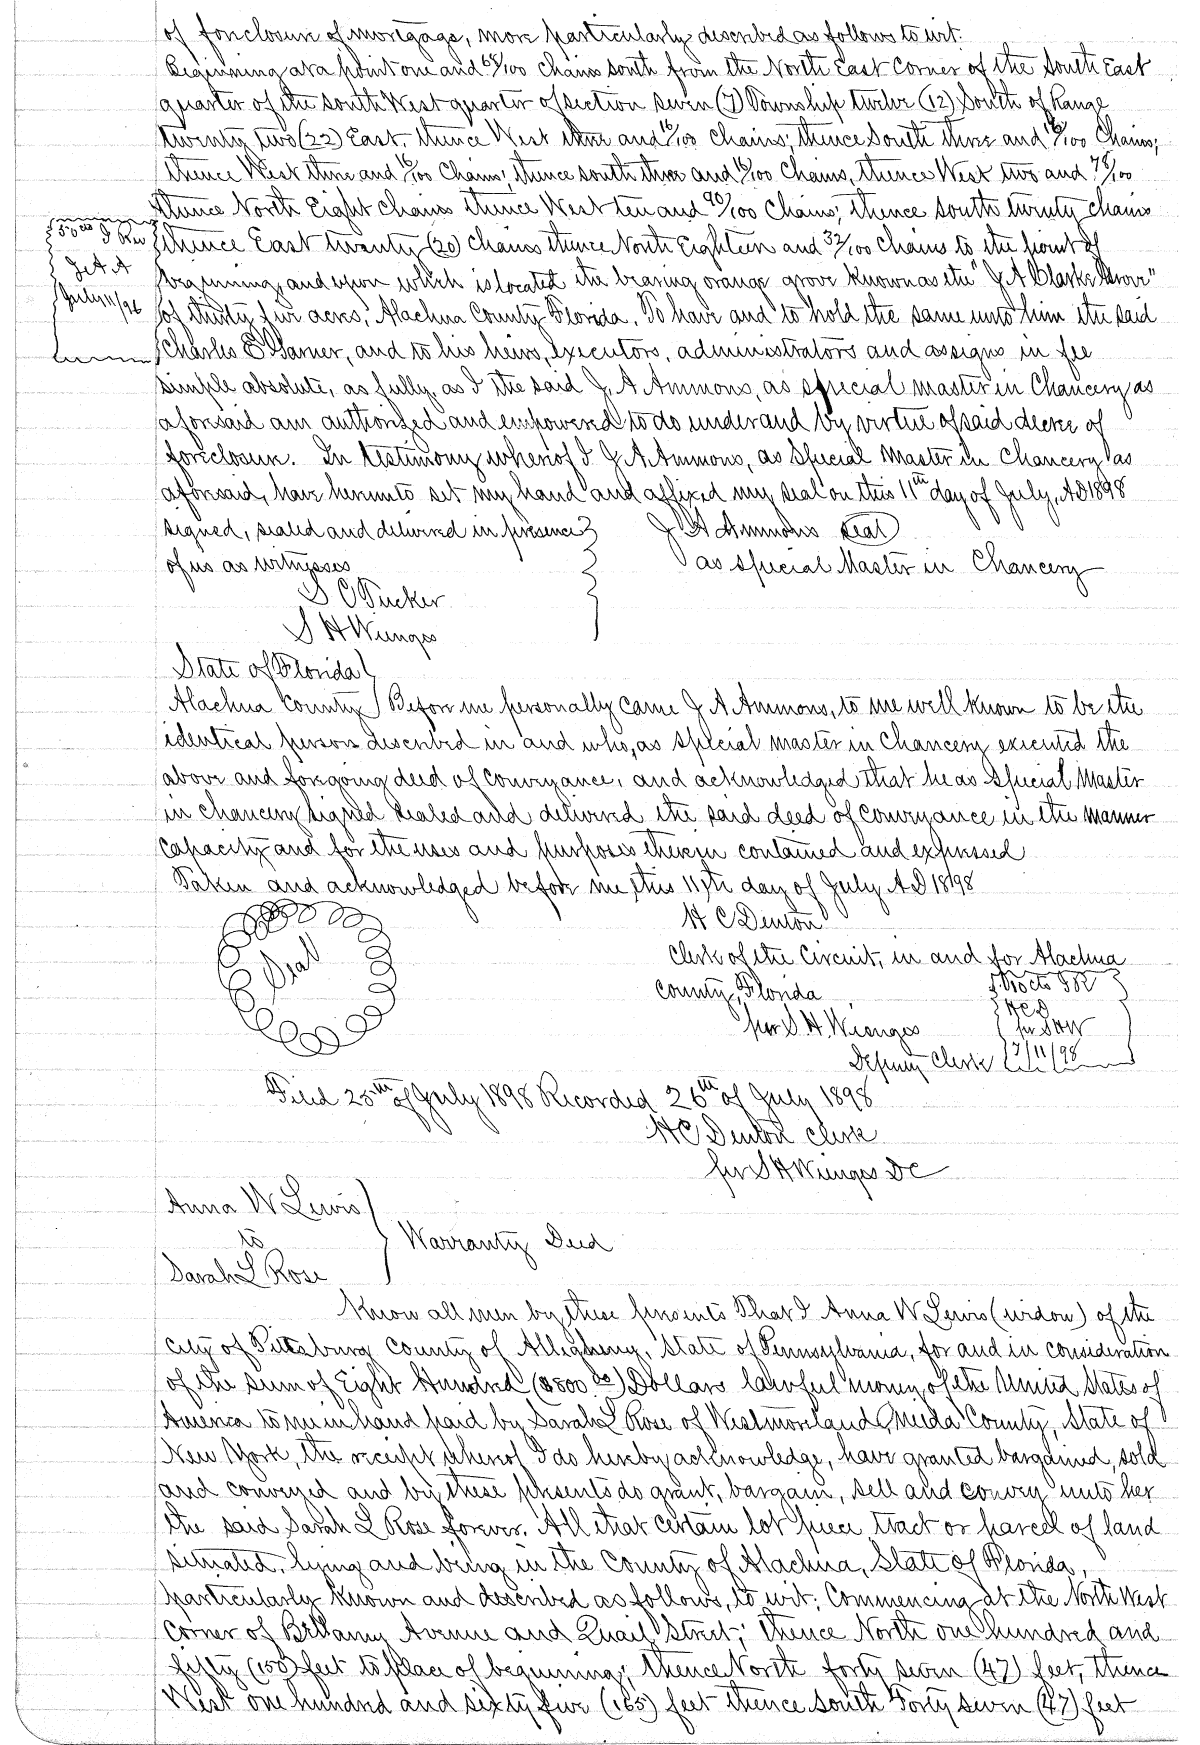 of foreclosure of mortgage, more particularly described as follows to wit:
Beginning at a point one and 68/100 chains south from the North East Corner of the South East
quarter of the south West quarter of section seven (7) Township twelve (12) South of Range
twenty two (22) East, thence West three and 16/100 Chains; thence South three and 16/100 Chains;
thence West three and 16/100 Chains; thence south three and 16/100 Chains, thence West two and 78/100
thence North Eight chains thence West ten and 90/100 Chains; thence south twenty chains
thence East twenty (20) chains thence North Eighteen and 32/100 chains to the point of
beginning and upon which is located the bearing orange grove known as the "J A Clarke Grove"
of thirty five acres, Alachua County Florida. To have and to hold the same unto him the said
Charles E Garner, and to his heirs, executors, administrators and assigns in fee
simple absolute, as fully, as I the said J. A. Ammons, as special master in Chancery as
aforesaid am authorized and empowered to do under and by virtue of said decree of
foreclosure. In testimony whereof I J. A. Ammons, as Special Master in Chancery as
aforesaid, have hereunto set my hand and affixed my seal on this 11th day of July, AD 1898
50 cts I Rev
J A A
July 11/98
signed, sealed and delivered in presence J A Ammons seal
of us as witnesses as special Master in Chancery
S C Tucker
S H Wienges
State of Florida
Alachua County Before me personally came J A Ammons, to me well known to be the
identical person described in and who, as special master in Chancery executed the
above and foregoing deed of conveyance, and acknowledged that he as special Master
in chancery signed sealed and delivered the said deed of conveyance in the manner
capacity and for the uses and purposes therein contained and expressed
Taken and acknowledged before me, this 11th day of July A.D 1898
Seal
H C Denton
Clerk of the Circuit, in and for Alachua
County, Florida
per S. H. Wienges
Deputy Clerk
10 cts I R
H C D
per S H W
7/11/98
Filed 25th of July 1898 Recorded 26th of July 1898
H C Denton Clerk
per S H Wienges D C
Anna W Lewis
to Warranty Deed
Sarah L Rose
Know all men by these presents That I Anna W Lewis (widow) of the
city of Pittsburg County of Allegheny, State of Pennsylvania, for and in consideration
of the sum of Eight Hundred ($800 00) Dollars lawful money of the United States of
America to me in hand paid by Sarah L Rose of Westmoreland Oneida County, State of
New York, the receipt whereof I do hereby acknowledge, have granted bargained, sold
and conveyed and by these presents do grant, bargain, sell and convey unto her
the said Sarah L Rose forever. All that certain lot piece tract or parcel of land
situated, lying and being in the County of Alachua, State of Florida,
particularly known and described as follows, to wit; Commencing at the North West
Corner of Bellamy Avenue and Quail Street; thence North one hundred and
fifty (150) feet to place of beginning; thence North forty seven (47) feet, thence
West one hundred and sixty five (165) feet thence south Forty seven (47) feet